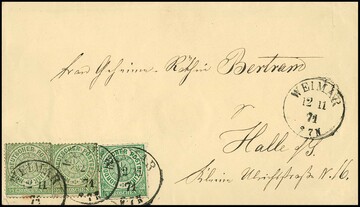 Frau Geheime-Räthin Bertram
WEIMAR
12 11
71
Halle a/S.
Kleine Ulrichstraße N. 16.
WEIMAR
12 11
71